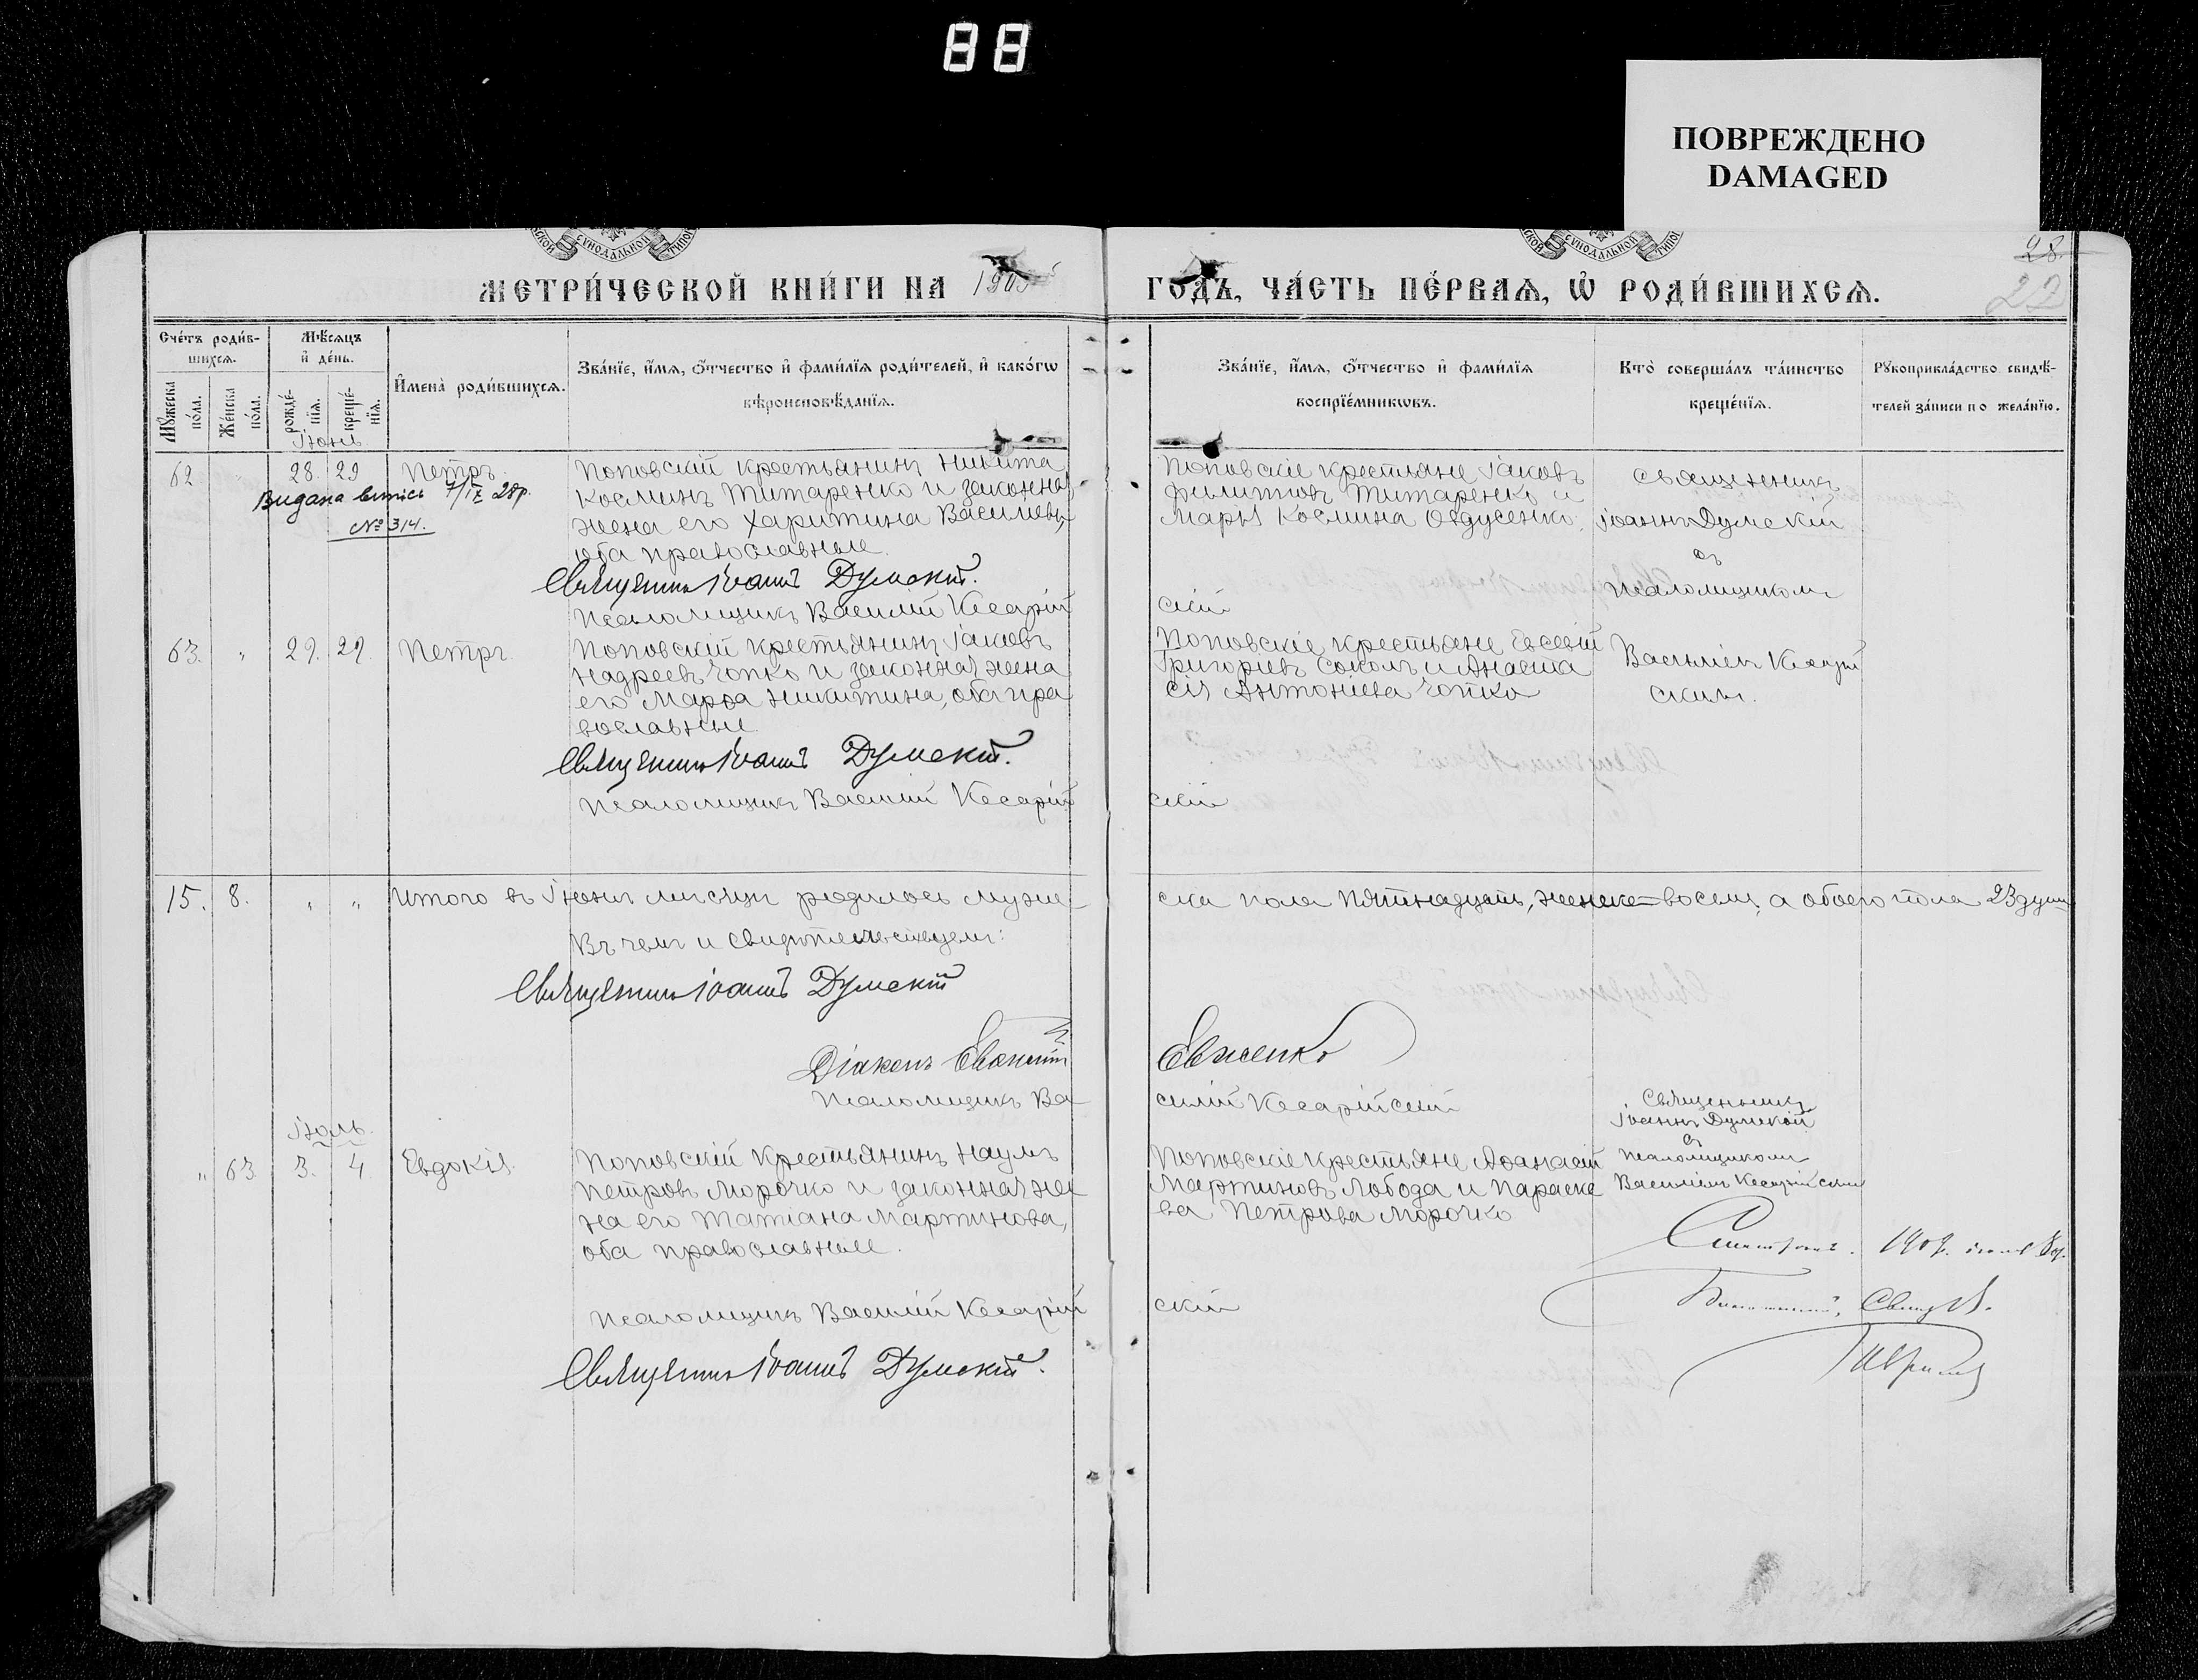 88
ПОВРЕЖДЕНО
DAMAGED
СУНОДАЛЬНОЙ
СУНОДАЛЬНОЙ
28.
22
МЕТРИ́ЧЕСКОЙ КНИ́ГИ НА 1905
ГОДЪ, ЧА́СТЬ ПЕ́РВАЯ, Ѡ҆ РОДИ́ВШИХСЯ.
Сче́тъ роди́в-
шихся.
Мѣ́сяцъ
и҆ де́нь.
Мꙋ́жеска по́ла.
Же́нска по́ла.
рожде́-
нїя.
креще́-
нїя.
И҆мена̀ роди́вшихся.
Зва́нїе, и҆́мя, ѻ҆́тчество и҆ фами́лїя роди́телей, и҆ како́гѡ
вѣроисповѣ́данїя.
Зва́нїе, и҆́мя, ѻ҆́тчество и҆ фами́лїя
воспрїе́мникѡвъ.
Кто̀ соверша́лъ та́инство
креще́нїя.
Рꙋкоприкла́дство свидѣ́-
телей за́писи по жела́нїю.
Іюнь
62 " 28. 29 Петръ.
Видана випись 7/IX 28р.
№ 314.
Поповскій крестьянинъ Никита
Косминъ Титаренко и законная
жена его Харитина Василіева,
оба православные.
Священникъ Іоаннъ Думскій.
Псаломщикъ Василій Кесарій
скій
Поповскіе крестьяне Іаковъ
Филиповъ Титаренко и
Марія Космина Овдусенко.
Священникъ
Іоаннъ Думскій
съ
псаломщикомъ
Василіемъ Кесарій
скимъ.
63. " 29. 29. Петръ.
Поповскій крестьянинъ Іаковъ
Чопко и законная жена
его Марѳа Никитина, оба пра
вославные.
Священникъ Іоаннъ Думскій.
Псаломщикъ Василій Кесарій
скій
Поповскіе крестьяне Евсевій
Григоріевъ Соколъ и Анаста
сія Антоніева Чопко
15. 8. " " Итого въ Іюнѣ мѣсяцѣ родилось муже
ска пола пятнадцать, женска = восемь, а обоего пола 23 души
Въ чемъ и свидѣтельствуемъ:
Священникъ Іоаннъ Думскій
Діаконъ
Евженко
Псаломщикъ Ва
силій Кесарійскій
Іюль.
" 63 3. 4. Евдокія.
Поповскій крестьянинъ Наумъ
Петровъ Морочко и законная же
на его Татіана Мартинова,
оба православные.
Псаломщикъ Василій Кесарій
скій
Священникъ Іоаннъ Думскій.
Поповскіе крестьяне Аѳанасій
Мартиновъ Лобода и Параске
ва Петрова Морочко
Священникъ
Іоаннъ Думскій
съ
псаломщикомъ
Василіемъ Кесарійскимъ